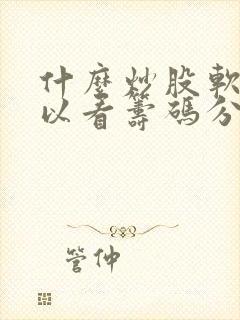 什麼炒股軟
以看籌碼分
管仲